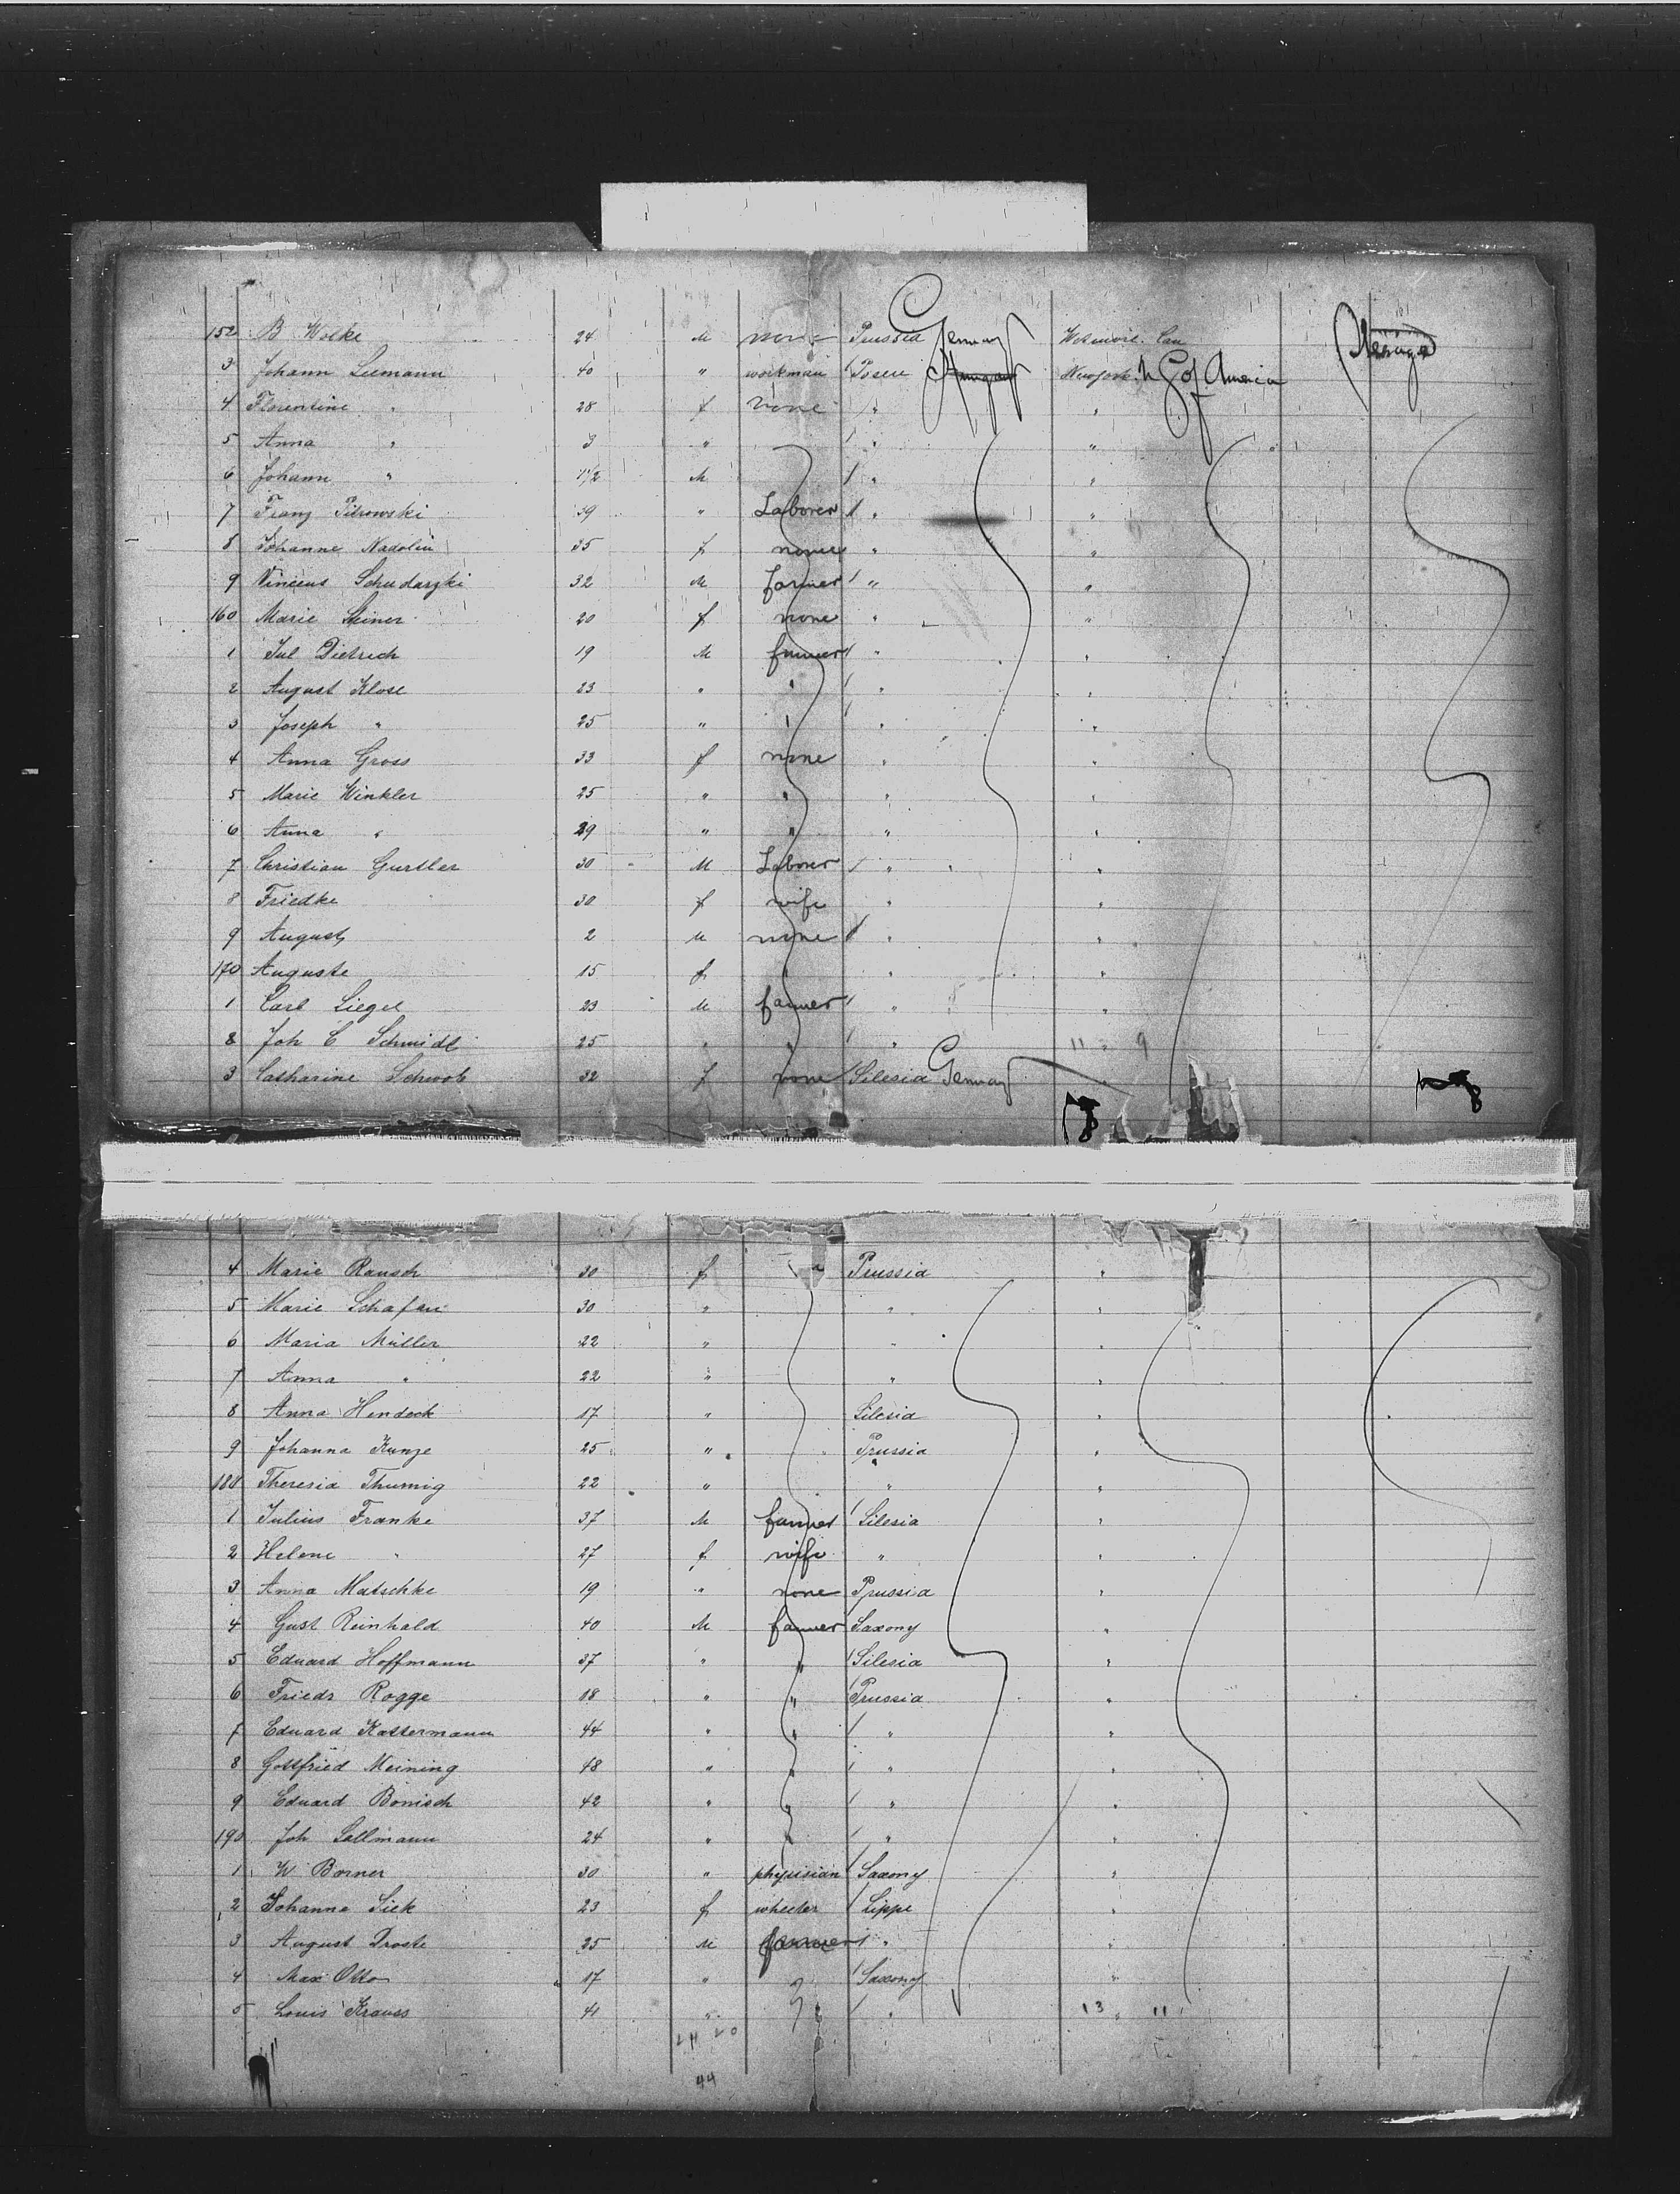 152 B Wolke 24 M none Prussia Germany
3 Johann Liemann 40 " workman Posen Hungary Newyork U S of America
4 Florentine " 28 f none " "
5 Anna " 3 " " "
6 Johann " 1 1/2 M " "
7 Franz 39 " Laborer " "
8 Johanne Nadolin 25 f none " "
9 Vincens 32 M farmer " "
160 Marie Steiner 20 f none " "
1 Jul Dietrich 19 M farmer " "
2 August Klose 23 " " " "
3 Joseph " 25 " " " "
4 Anna Gross 33 f none " "
5 Marie Winkler 25 " " " "
6 Anna " 29 " " " "
7 Christian Gurtler 30 M Laborer " "
8 Friedke 30 f wife " "
9 August 2 M none " "
170 Auguste 15 f " "
1 Carl Liegel 23 M farmer " "
2 Joh C Schmidt 25 " " " 11 " 9
3 Catharine Schwob 32 f none Silesia Germany
4 Marie Rausch 30 f Prussia "
5 Marie 30 " " "
6 Maria Müller 22 " " "
7 Anna " 22 " " "
8 Anna Hendeck 17 " Silesia "
9 Johanna Kunze 25 " Prussia "
180 Theresia Thumig 22 " " "
1 Julius Franke 37 M farmer Silesia "
2 Helene " 27 f wife " "
3 Anna Matschke 19 " none Prussia "
4 Gust Reinhald 40 M farmer Saxony "
5 Eduard Hoffmann 37 " " Silesia "
6 Friedr Rogge 18 " " Prussia "
7 Eduard Kastermann 44 " " " "
8 Gottfried Meining 48 " " " "
9 Eduard Bonisch 42 " " " "
190 Joh Sallmann 24 " " " "
1 W Borner 30 " physician Saxony "
2 Johanne Siek 23 f Lippe "
3 August Droste 25 M farmer " "
4 Max Otto 17 " " Saxony "
5 Louis Krauss 41 " " " 13 " 11
24 20
44